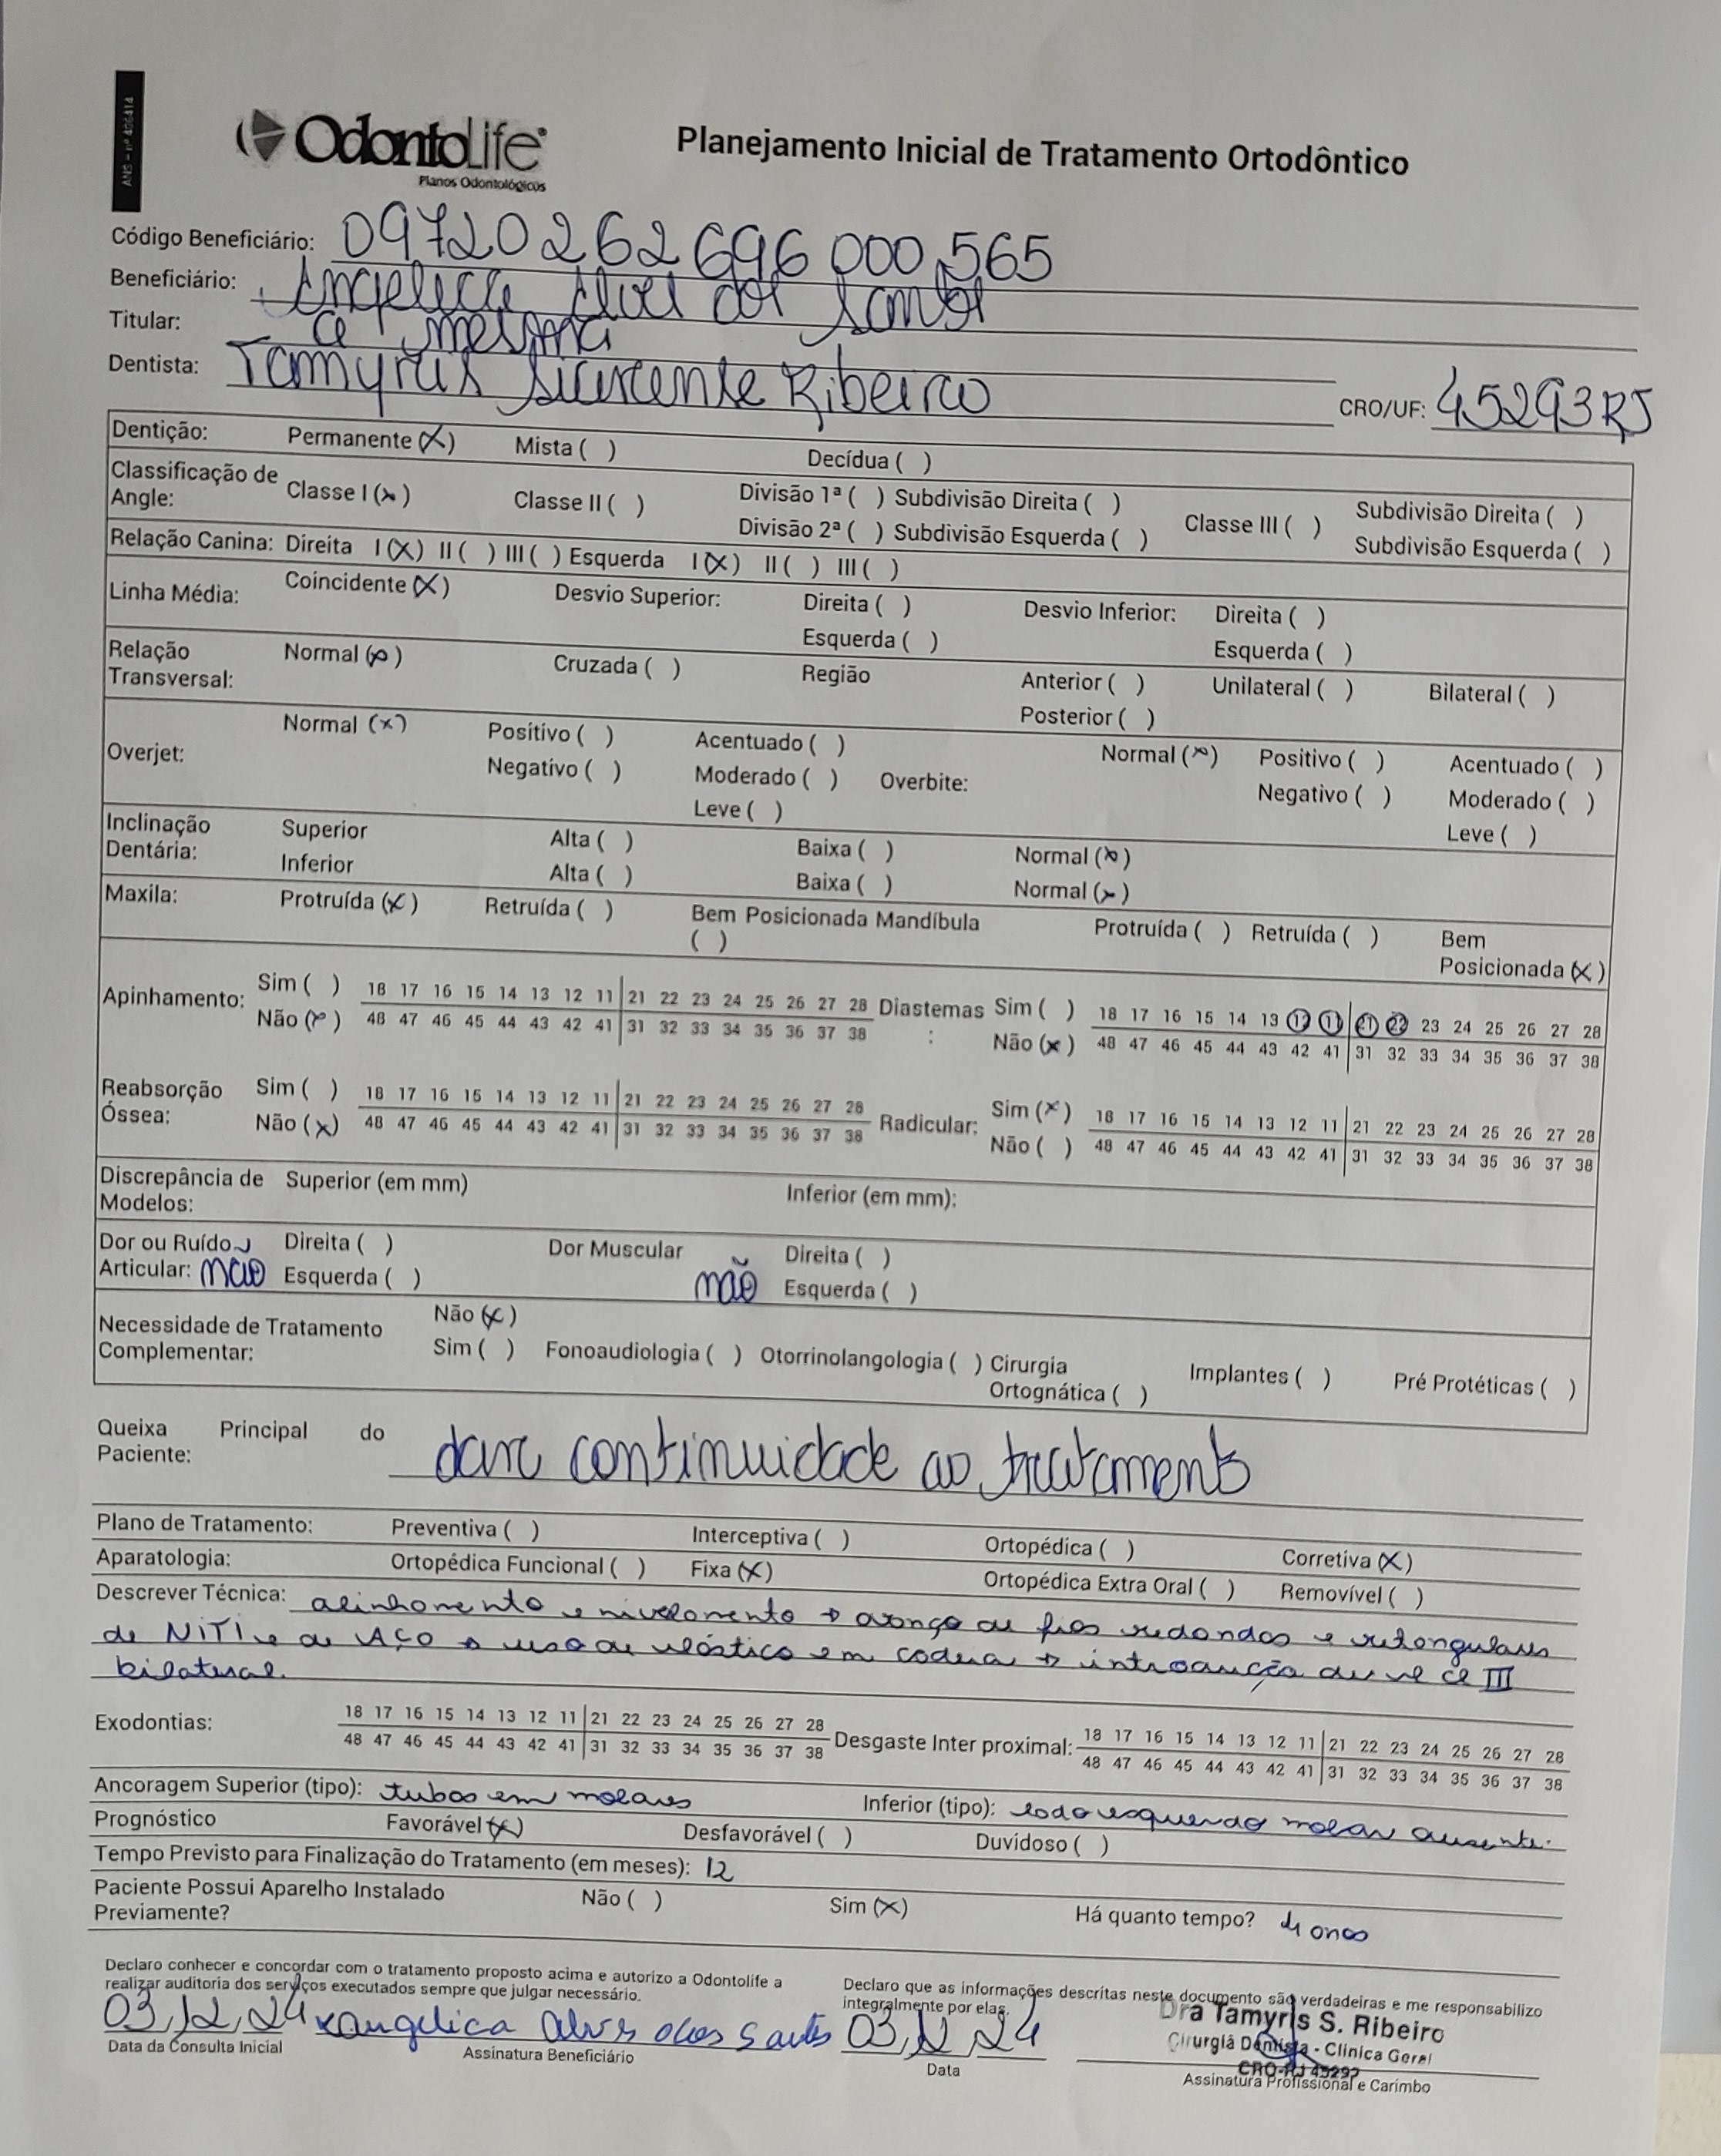 ANS - nº 406414
OdontoLife®
Planos Odontológicos
Planejamento Inicial de Tratamento Ortodôntico
Código Beneficiário: 09720262696000565
Beneficiário: Angelica Alves dos Santos
Titular: a mesma
Dentista: Tamyris Ribeiro CRO/UF: 45293RJ
Dentição: Permanente (X) Mista ( ) Decídua ( )
Classificação de Angle: Classe I (X) Classe II ( ) Divisão 1ª ( ) Subdivisão Direita ( ) Classe III ( ) Subdivisão Direita ( )
Divisão 2ª ( ) Subdivisão Esquerda ( ) Subdivisão Esquerda ( )
Relação Canina: Direita I (X) II ( ) III ( ) Esquerda I (X) II ( ) III ( )
Linha Média: Coincidente (X) Desvio Superior: Direita ( ) Desvio Inferior: Direita ( )
Esquerda ( ) Esquerda ( )
Relação Transversal: Normal (X) Cruzada ( ) Região Anterior ( ) Unilateral ( ) Bilateral ( )
Posterior ( )
Overjet: Normal (X) Positivo ( ) Acentuado ( ) Overbite: Normal (X) Positivo ( ) Acentuado ( )
Negativo ( ) Moderado ( ) Negativo ( ) Moderado ( )
Leve ( ) Leve ( )
Inclinação Dentária: Superior Alta ( ) Baixa ( ) Normal (X)
Inferior Alta ( ) Baixa ( ) Normal (X)
Maxila: Protruída (X) Retruída ( ) Bem Posicionada ( ) Mandíbula Protruída ( ) Retruída ( ) Bem Posicionada (X)
Apinhamento: Sim ( ) 18 17 16 15 14 13 12 11 21 22 23 24 25 26 27 28 Diastemas: Sim ( ) 18 17 16 15 14 13 12 11 21 22 23 24 25 26 27 28
Não (X) 48 47 46 45 44 43 42 41 31 32 33 34 35 36 37 38 Não (X) 48 47 46 45 44 43 42 41 31 32 33 34 35 36 37 38
Reabsorção Óssea: Sim ( ) 18 17 16 15 14 13 12 11 21 22 23 24 25 26 27 28 Radicular: Sim (X) 18 17 16 15 14 13 12 11 21 22 23 24 25 26 27 28
Não (X) 48 47 46 45 44 43 42 41 31 32 33 34 35 36 37 38 Não ( ) 48 47 46 45 44 43 42 41 31 32 33 34 35 36 37 38
Discrepância de Modelos: Superior (em mm) Inferior (em mm):
Dor ou Ruído Articular: não Direita ( ) Dor Muscular não Direita ( )
Esquerda ( ) Esquerda ( )
Necessidade de Tratamento Complementar: Não (X)
Sim ( ) Fonoaudiologia ( ) Otorrinolangologia ( ) Cirurgia Ortognática ( ) Implantes ( ) Pré Protéticas ( )
Queixa Principal do Paciente: dar continuidade ao tratamento
Plano de Tratamento: Preventiva ( ) Interceptiva ( ) Ortopédica ( ) Corretiva (X)
Aparatologia: Ortopédica Funcional ( ) Fixa (X) Ortopédica Extra Oral ( ) Removível ( )
Descrever Técnica: alinhamento e nivelamento → avanço de fios redondos e retangulares
de NiTi e de Aço → uso de elástico em cadeia → introdução de el cl III
bilateral.
Exodontias: 18 17 16 15 14 13 12 11 21 22 23 24 25 26 27 28 Desgaste Inter proximal: 18 17 16 15 14 13 12 11 21 22 23 24 25 26 27 28
48 47 46 45 44 43 42 41 31 32 33 34 35 36 37 38 48 47 46 45 44 43 42 41 31 32 33 34 35 36 37 38
Ancoragem Superior (tipo): tubos em molares Inferior (tipo): lado esquerdo molar ausente.
Prognóstico Favorável (X) Desfavorável ( ) Duvidoso ( )
Tempo Previsto para Finalização do Tratamento (em meses): 12
Paciente Possui Aparelho Instalado Previamente? Não ( ) Sim (X) Há quanto tempo? 4 anos
Declaro conhecer e concordar com o tratamento proposto acima e autorizo a Odontolife a
realizar auditoria dos serviços executados sempre que julgar necessário.
Declaro que as informações descritas neste documento são verdadeiras e me responsabilizo
integralmente por elas.
03/12/24 x angelica Alves dos Santos 03/12/24
Data da Consulta Inicial Assinatura Beneficiário Data
Dra Tamyris S. Ribeiro
Cirurgiã Dentista - Clínica Geral
CRO-RJ 45293
Assinatura Profissional e Carimbo